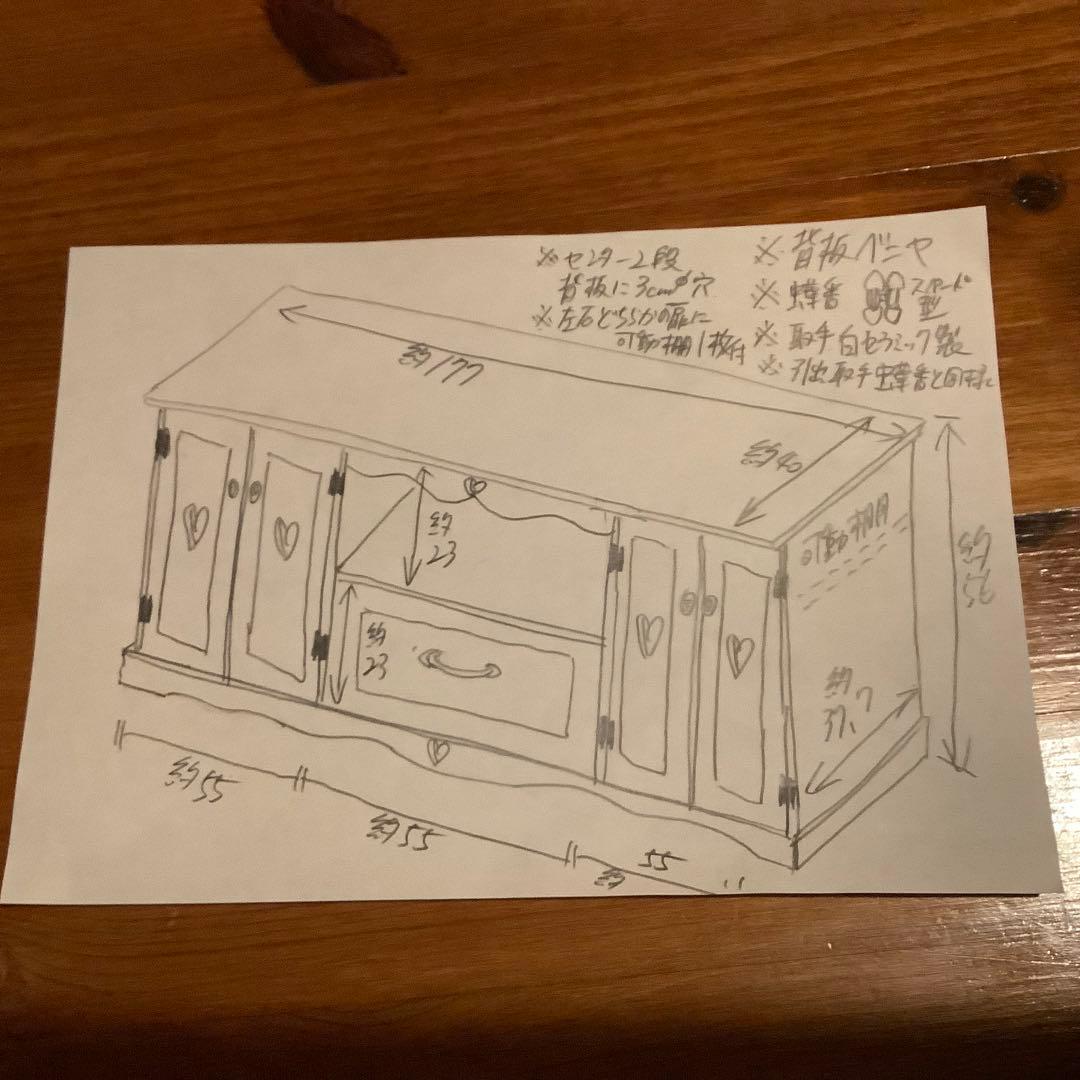 ※センター2段
背板に3cmφ穴
※左右どちらかの扉に
可動棚1枚付
※背板ベニヤ
※蝶番 スペード型
※取手白セラミック製
※引出取手蝶番と同様に
約177
約40
約23
可動棚用
約55
約23
約37.7
約55
約55
約55